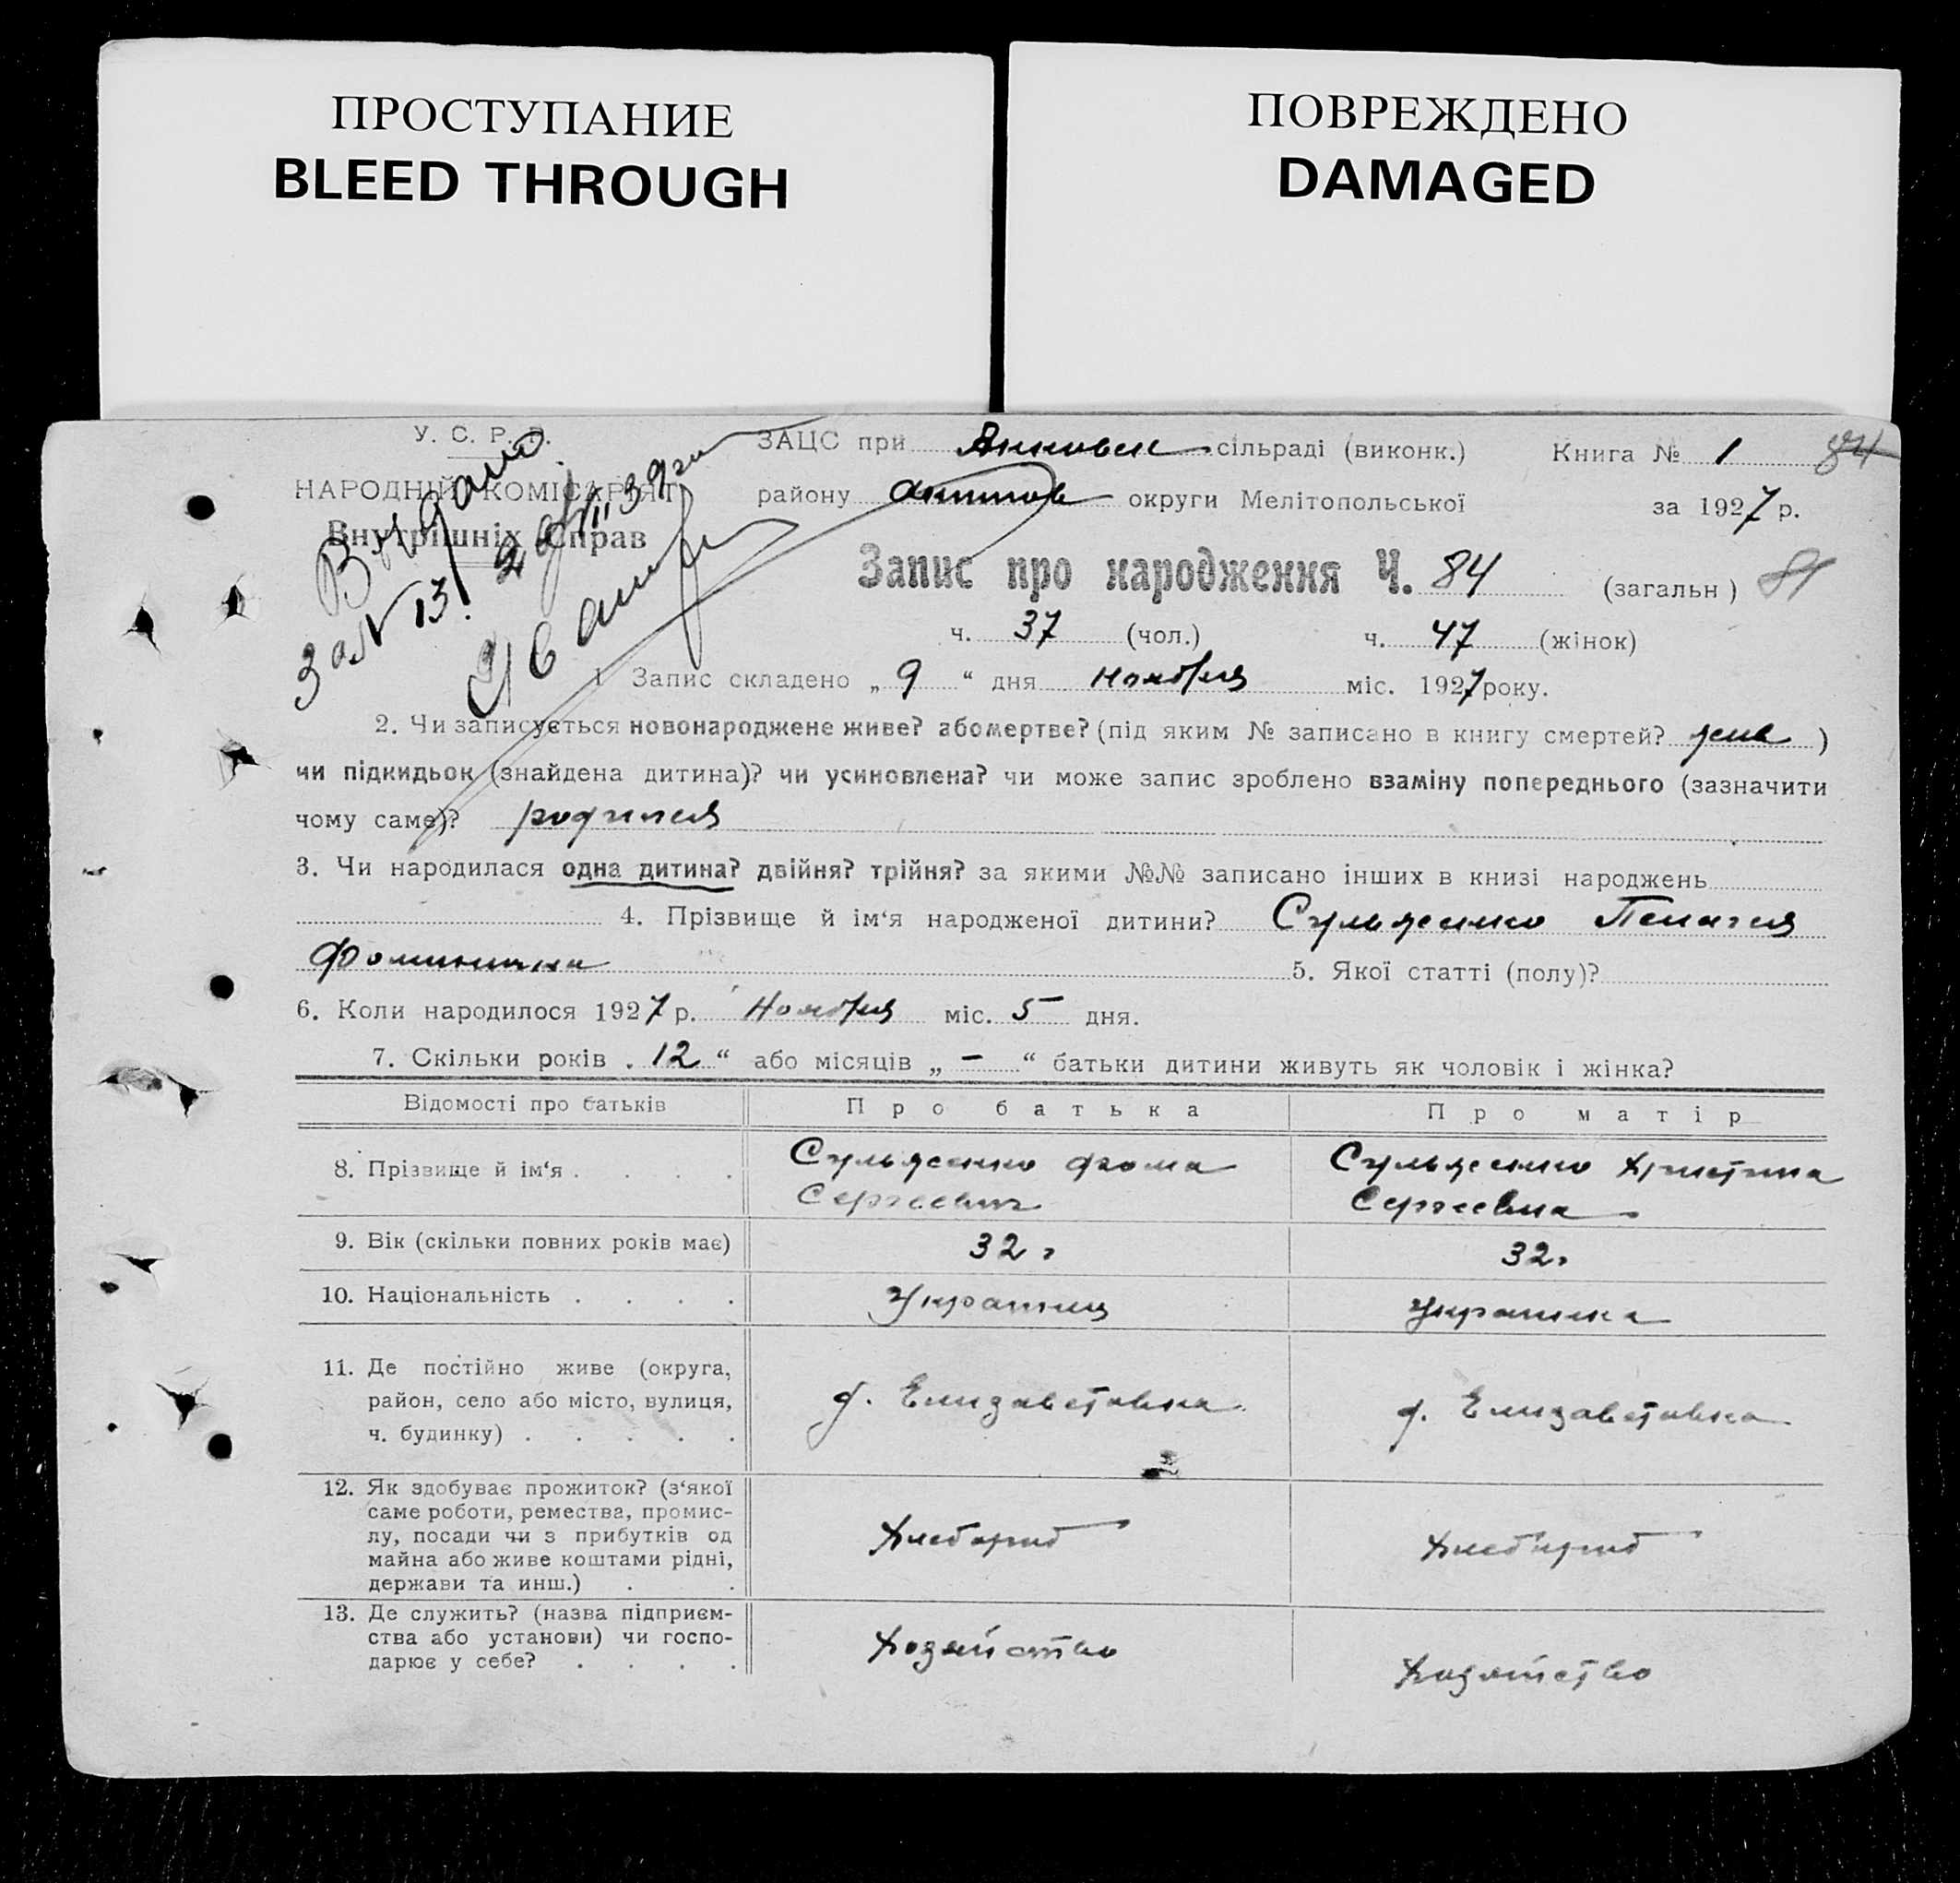 ПРОСТУПАНИЕ
BLEED THROUGH
ПОВРЕЖДЕНО
DAMAGED
У. С. Р. Р.
НАРОДНІЙ КОМІСАРІЯТ
Внутрішніх Справ
Видано
ЗАЦС при Анновск. сільраді (виконк.) Книга № 1 84
району округи Мелітопольської за 1927 р.
Запис про народження Ч. 84 (загальн)
ч. 37 (чол.) ч. 47 (жінок)
1 Запис складено „ 9 “ дня ноября міс. 1927 року.
2. Чи записується новонароджене живе? або мертве? (під яким № записано в книгу смертей? )
чи підкидьок (знайдена дитина)? чи усиновлена? чи може запис зроблено взаміну попереднього (зазначити
чому саме)? родился
3. Чи народилася одна дитина? двійня? трійня? за якими №№ записано інших в книзі народжень
4. Прізвище й ім‘я народженої дитини? Сульженко Пелагея
Фоминична 5. Якої статті (полу)?
6. Коли народилося 1927 р. Ноября міс. 5 дня.
7. Скільки років „ 12 “ або місяців „ — “ батьки дитини живуть як чоловік і жінка?
Відомості про батьків Про батька Про матір
8. Прізвище й ім‘я . . . . Сульженко Фома Сульженко Христина
Сергеевич Сергеевна
9. Вік (скільки повних років має) 32 г 32 г
10. Національність . . . . Украинец Украинка
11. Де постійно живе (округа,
район, село або місто, вулиця,
ч. будинку) . . . . . д. Елизаветовка д. Елизаветовка
12. Як здобуває прожиток? (з‘якої
саме роботи, ремества, промис-
лу, посади чи з прибутків од
майна або живе коштами рідні,
держави та инш.) . . Хлебороб Хлебороб
13. Де служить? (назва підприєм-
ства або установи) чи госпо-
дарює у себе? . . . . Хозяйство Хозяйство